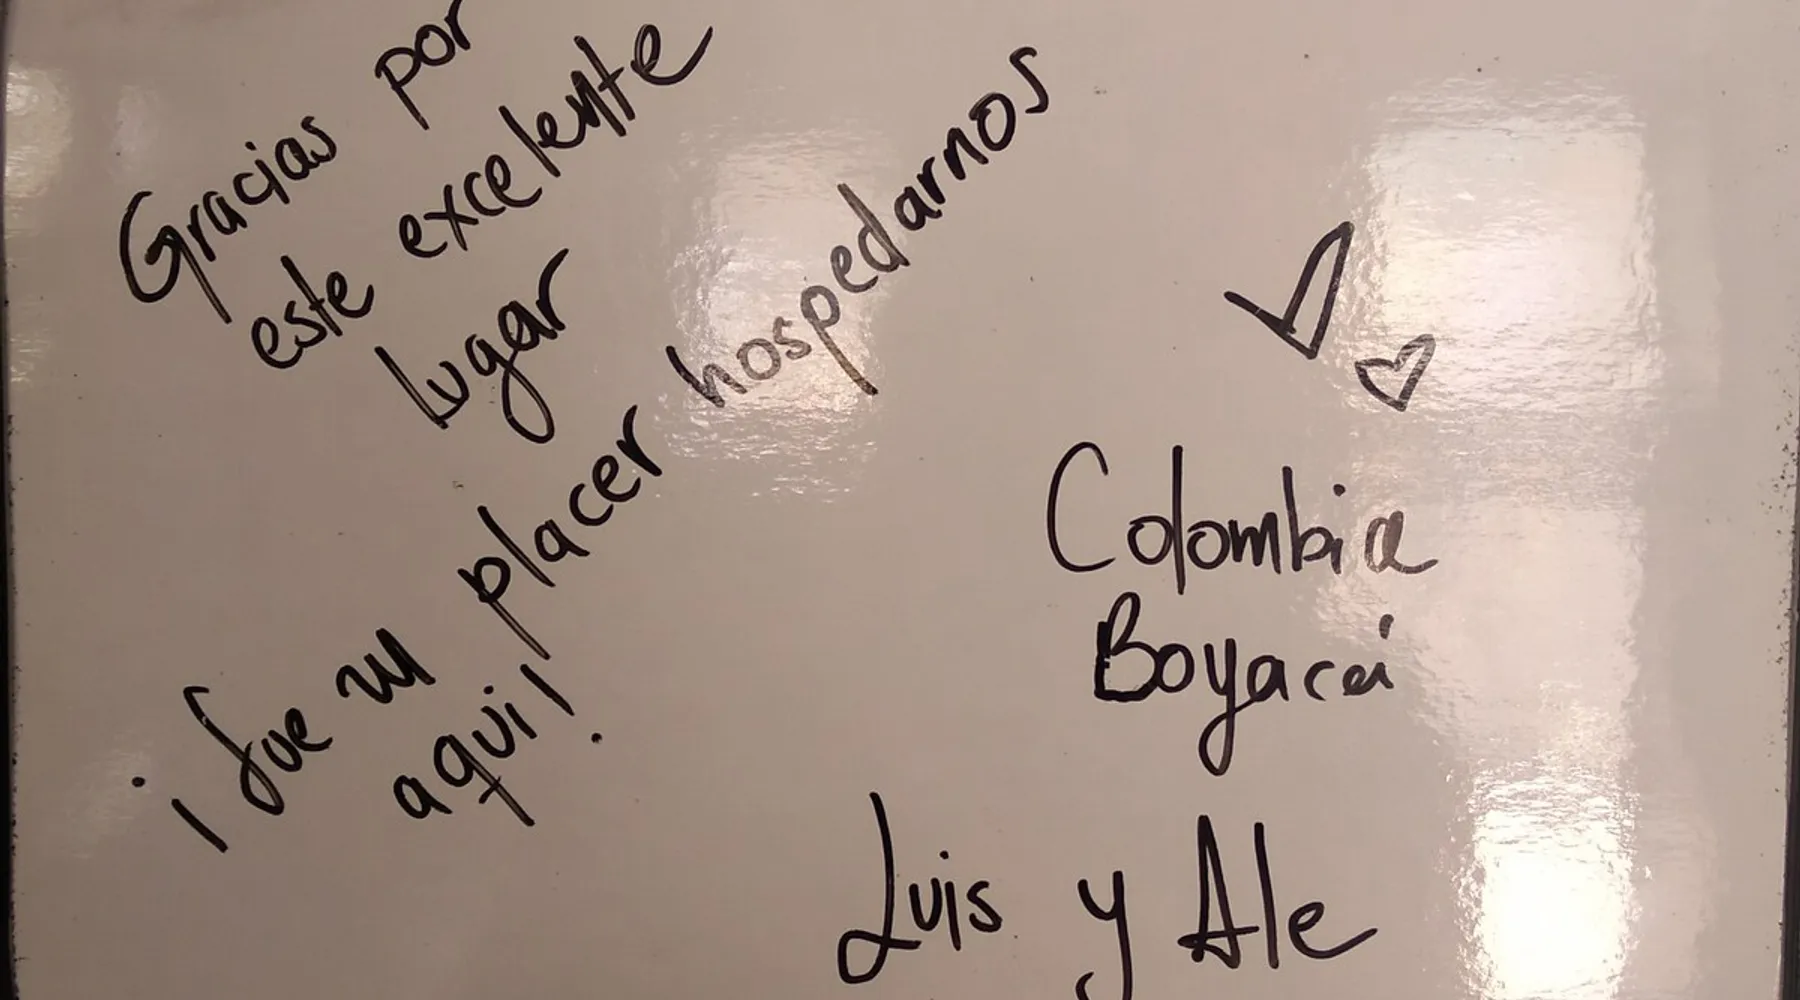 Gracias por
este excelente
lugar
¡fue un placer hospedarnos
aqui!
Colombia
Boyacá
Luis y Ale